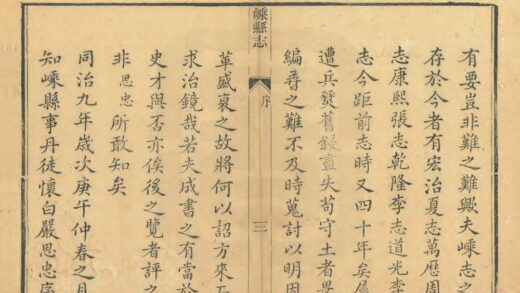 有要豈非難之難歟夫嵊志之
存於今者有宏治夏志萬歷周
志康熙張志乾隆李志道光李
志今距前志時又四十年矣屬
遭兵燹舊鋟盡失苟守土者畏
編之難不及時蒐討以明因
嵊縣志
序
三
革盛衰之故將何以詔方來
求治鏡哉若夫成書之有當於
史才與否亦俟後之覽者評之
非思忠所敢知矣
同治九年歲次庚午仲春之月
知嵊縣事丹徒懷白嚴思忠序